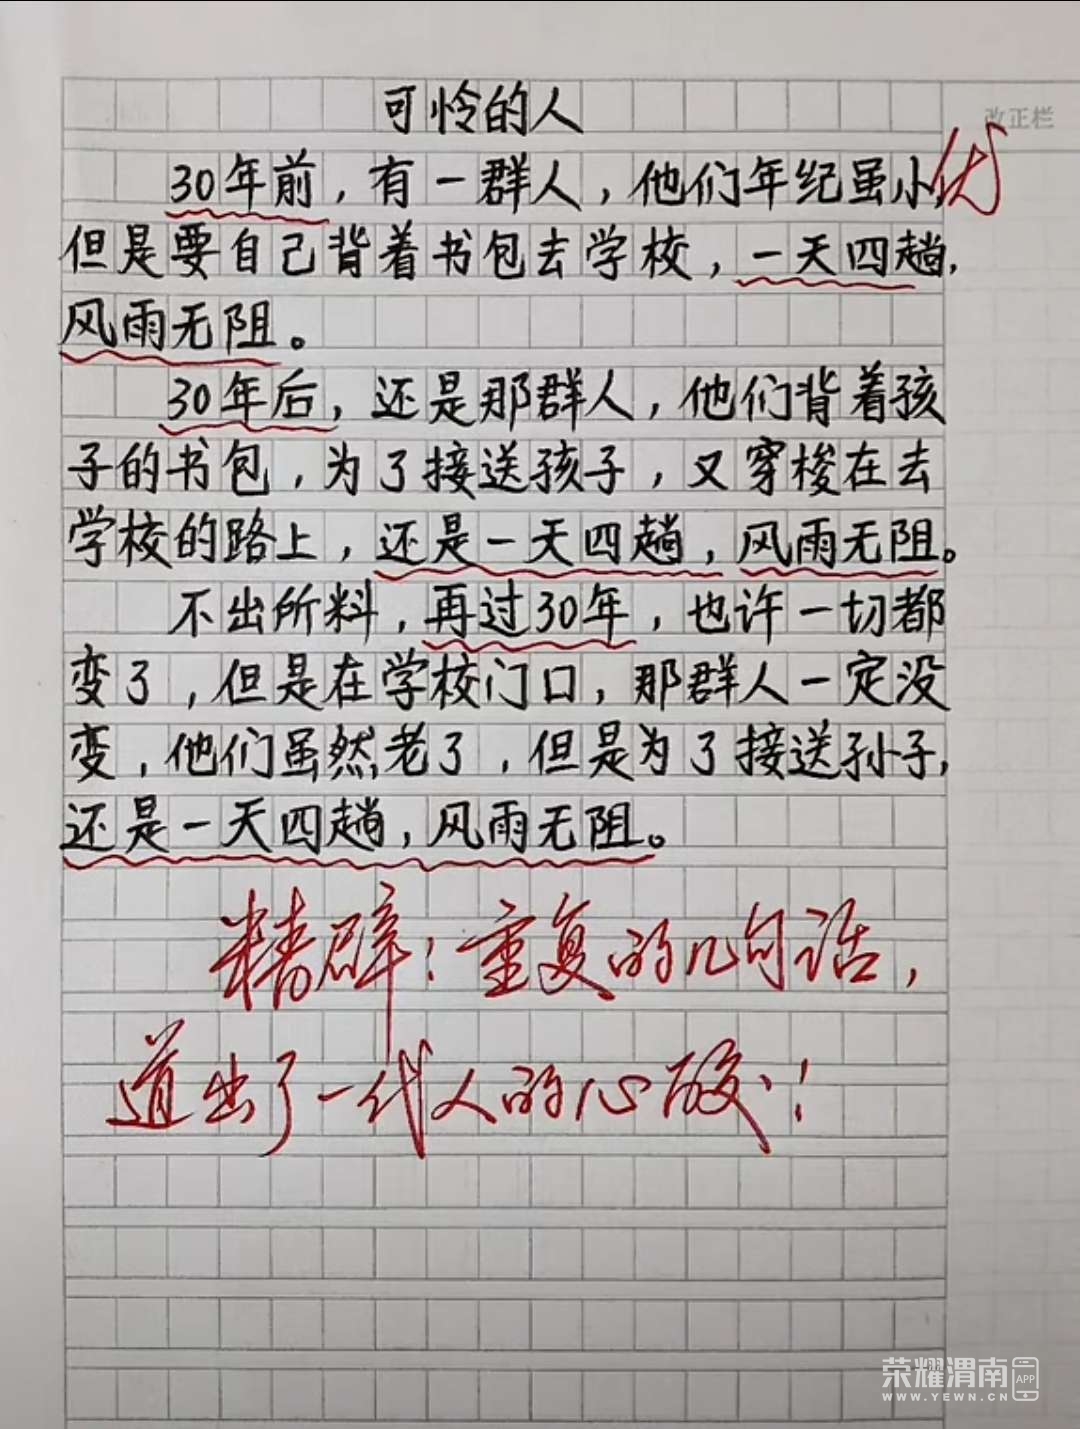 可怜的人
改正栏
30年前，有一群人，他们年纪虽小，
优
但是要自己背着书包去学校，一天四趟，
风雨无阻。
30年后，还是那群人，他们背着孩
子的书包，为了接送孩子，又穿梭在去
学校的路上，还是一天四趟，风雨无阻。
不出所料，再过30年，也许一切都
变了，但是在学校门口，那群人一定没
变，他们虽然老了，但是为了接送孙子，
还是一天四趟，风雨无阻。
精辟！重复的几句话，
道出了一代人的心酸！
荣耀渭南 APP
WWW.YEWN.CN